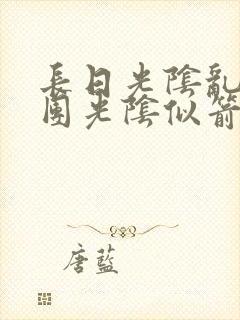 長日光陰亂
園光陰似箭
唐藍